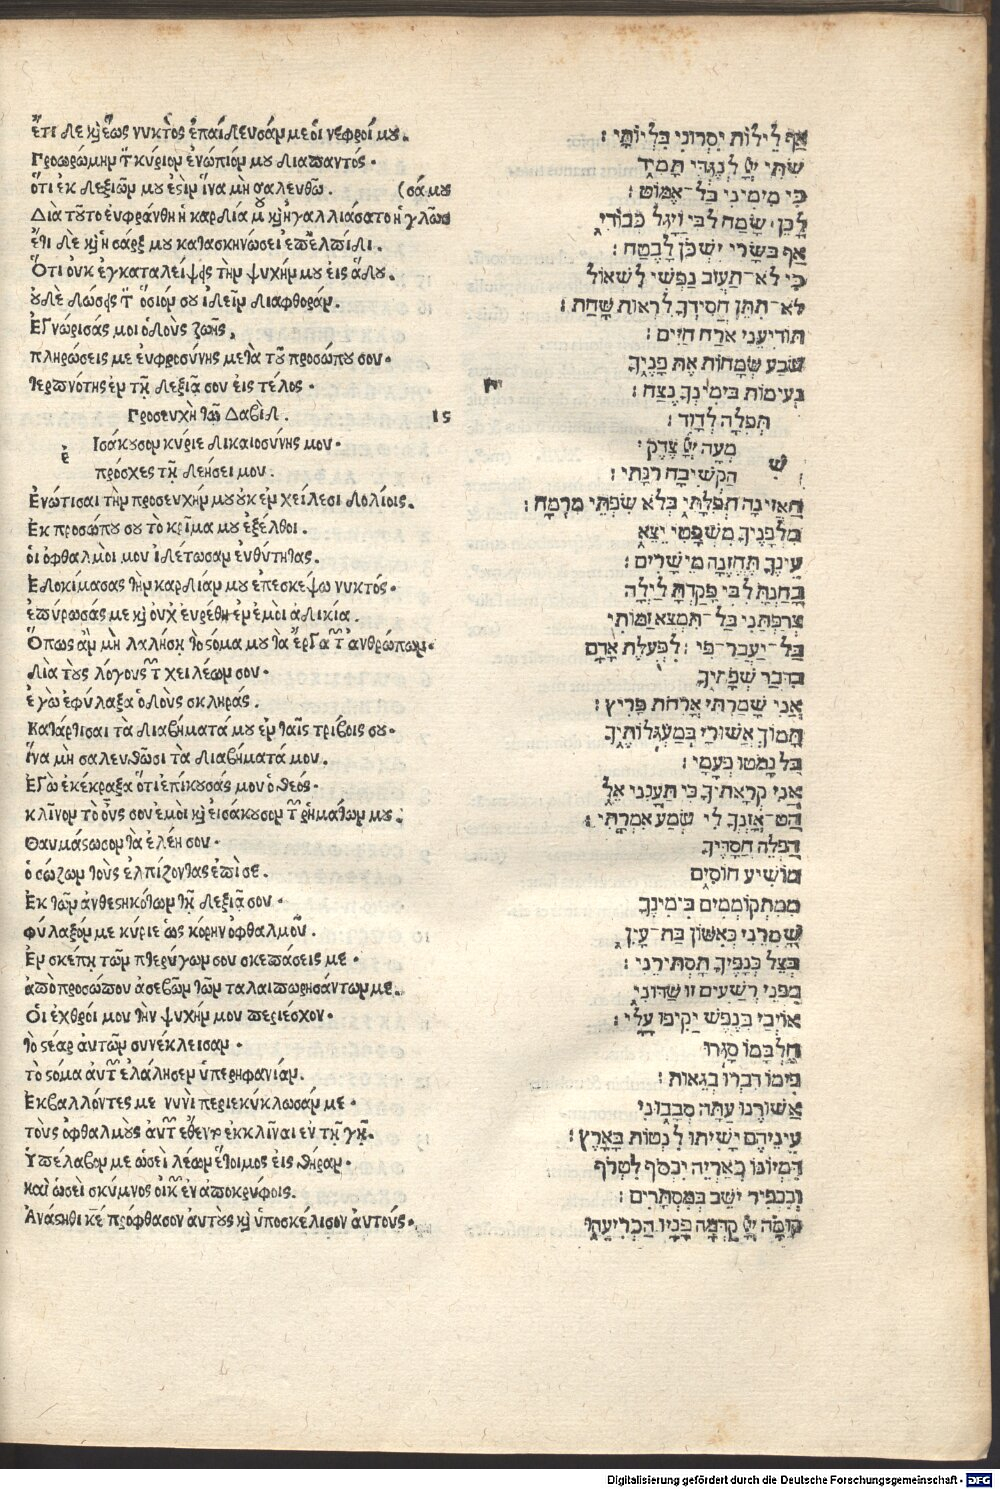 ἔτι δὲ κὶ ἕως νυκτὸς ἐπαίδευσάν με ὁι νεφροί μου.
Προωρώμην τ κύριον ἐνώπιόν μου διαπαντός.
ὅτι ἐκ δεξιῶν μου ἐςὶν ἵνα μὴ σαλευθῶ. (σά μου
Διὰ τοῦτο ἐυφράνθη ἡ καρδία μ κὶ ἠγαλλιάσατο ἡ γλῶσ
ἔτι δὲ κὶ ἡ σάρξ μου κατασκηνώσει ἐπ ἐλπίδι.
Ὅτι ὀυκ ἐγκαταλείψεις τὴν ψυχήν μου εἰς ἅδου.
ὀυδὲ δώσεις τ ὅσιόν σου ἰδεῖν διαφθοράν.
Ἐγνώρισάς μοι ὁδοὺς ζωῆς.
πληρώσεις με ἐυφροσύνης μετὰ τοῦ προσώπου σου.
τερπνότης ἐν τῇ δεξιᾷ σου εἰς τέλος.
Προσευχὴ τῶ Δαβίδ. 15
Ἰσάκουσον κύριε δικαιοσύνης μου.
ἐ
πρόσχες τῇ δεήσει μου.
Ἐνώτισαι τὴν προσευχήν μου ὀυκ ἐν χείλεσι δολίοις.
Ἐκ προσώπου σου τὸ κρῖμα μου ἐξέλθοι.
ὁι ὀφθαλμοὶ μου ἰδέτωσαν ἐυθύτητας.
Ἐδοκίμασας τὴν καρδίαν μου ἐπεσκέψω νυκτός.
ἐπύρωσάς με κὶ ὀυχ ἑυρέθη ἐν ἐμοὶ ἀδικία.
Ὅπως ἂν μὴ λαλήσῃ τὸ ςόμα μου τὰ ἔργα τ ἀνθρώπων.
διὰ τοὺς λόγους τ χειλέων σου.
ἐγὼ ἐφύλαξα ὁδοὺς σκληράς.
Κατάρτισαι τὰ διαβήματά μου ἐν ταῖς τρίβοις σου.
ἵνα μὴ σαλευθῶσι τὰ διαβήματά μου.
Ἐγὼ ἐκέκραξα ὅτι ἐπήκουσάς μου ὁ θεός.
κλῖνον τὸ οὖς σου ἐμοὶ κὶ εἰσάκουσον τ ῥημάτων μου.
Θαυμάσωσον τὰ ἐλέη σου.
ὁ σώζων τοὺς ἐλπίζοντας ἐπὶ σε.
Ἐκ τῶν ἀνθεςηκότων τῇ δεξιᾷ σου.
φύλαξόν με κύριε ὡς κόρην ὀφθαλμοῦ.
Ἐν σκέπῃ τῶν πτερύγων σου σκεπάσεις με.
ἀπὸ προσώπου ἀσεβῶν τῶν ταλαιπωρησάντων με.
Ὁι ἐχθροί μου τὴν ψυχήν μου περιέσχον.
τὸ ςέαρ ἀυτῶν συνέκλεισαν.
τὸ ςόμα ἀυτ ἐλάλησεν ὑπερηφανίαν.
Ἐκβαλλόντες με νυνὶ περιεκύκλωσαν με.
τους ὀφθαλμοὺς ἀυτ ἔθεντο ἐκκλῖναι εν τῇ γῇ.
Ὑπέλαβον με ὡσεὶ λέων ἕτοιμος εἰς θήραν.
καὶ ὡσεὶ σκύμνος ὀικ ἐν ἀποκρύφοις.
Ἀνάςηθι κε πρόφθασον ἀυτοὺς κὶ ὑποσκέλισον ἀυτούς.
אַף לֵילוֹת יִסְרוּנִי כִלְיוֹתָי׃
לְנֶגְדִּי תָמִיד
כִּי מִימִינִי בַּל־אֶמּוֹט׃
לָכֵן שָׂמַח לִבִּי וַיָּגֶל כְּבוֹדִי
אַף בְּשָׂרִי יִשְׁכֹּן לָבֶטַח׃
כִּי לֹא־תַעֲזֹב נַפְשִׁי לִשְׁאוֹל
לֹא־תִתֵּן חֲסִידְךָ לִרְאוֹת שָׁחַת׃
תּוֹדִיעֵנִי אֹרַח חַיִּים׃
שֹׂבַע שְׂמָחוֹת אֶת פָּנֶיךָ
נְעִימוֹת בִּימִינְךָ נֶצַח׃
תְּפִלָּה לְדָוִד׃
שִׁ
מְעָה צֶדֶק׃
הַקְשִׁיבָה רִנָּתִי׃
הַאֲזִינָה תְפִלָּתִי בְּלֹא שִׂפְתֵי מִרְמָה׃
מִלְּפָנֶיךָ מִשְׁפָּטִי יֵצֵא
עֵינֶיךָ תֶּחֱזֶנָה מֵישָׁרִים׃
בָּחַנְתָּ לִבִּי פָּקַדְתָּ לַּיְלָה
צְרַפְתַּנִי בַל־תִּמְצָא זַמּוֹתִי
בַּל־יַעֲבָר־פִּי׃ לִפְעֻלַּת אָדָם
בִּדְבַר שְׂפָתֶיךָ
אֲנִי שָׁמַרְתִּי אָרְחֹת פָּרִיץ׃
תָּמוֹךְ אֲשׁוּרַי בְּמַעְגְּלוֹתֶיךָ
בַּל נָמֹטּוּ פְעָמָי׃
אֲנִי קְרָאתִיךָ כִּי תַעֲנֵנִי אֵל
הַט־אָזְנְךָ לִי שְׁמַע אִמְרָתִי׃
הַפְלֵה חֲסָדֶיךָ
מוֹשִׁיעַ חוֹסִים
מִמִּתְקוֹמְמִים בִּימִינֶךָ
שָׁמְרֵנִי כְּאִישׁוֹן בַּת־עָיִן
בְּצֵל כְּנָפֶיךָ תַּסְתִּירֵנִי׃
מִפְּנֵי רְשָׁעִים זוּ שַׁדּוּנִי
אוֹיְבַי בְּנֶפֶשׁ יַקִּיפוּ עָלָי׃
חֶלְבָּמוֹ סָּגְרוּ
פִּימוֹ דִּבְּרוּ בְגֵאוּת׃
אַשּׁוּרֵנוּ עַתָּה סְבָבוּנִי
עֵינֵיהֶם יָשִׁיתוּ לִנְטוֹת בָּאָרֶץ׃
דִּמְיוֹנוֹ כְּאַרְיֵה יִכְסוֹף לִטְרוֹף
וְכִכְפִיר יֹשֵׁב בְּמִסְתָּרִים׃
קוּמָה קַדְּמָה פָנָיו הַכְרִיעֵהוּ